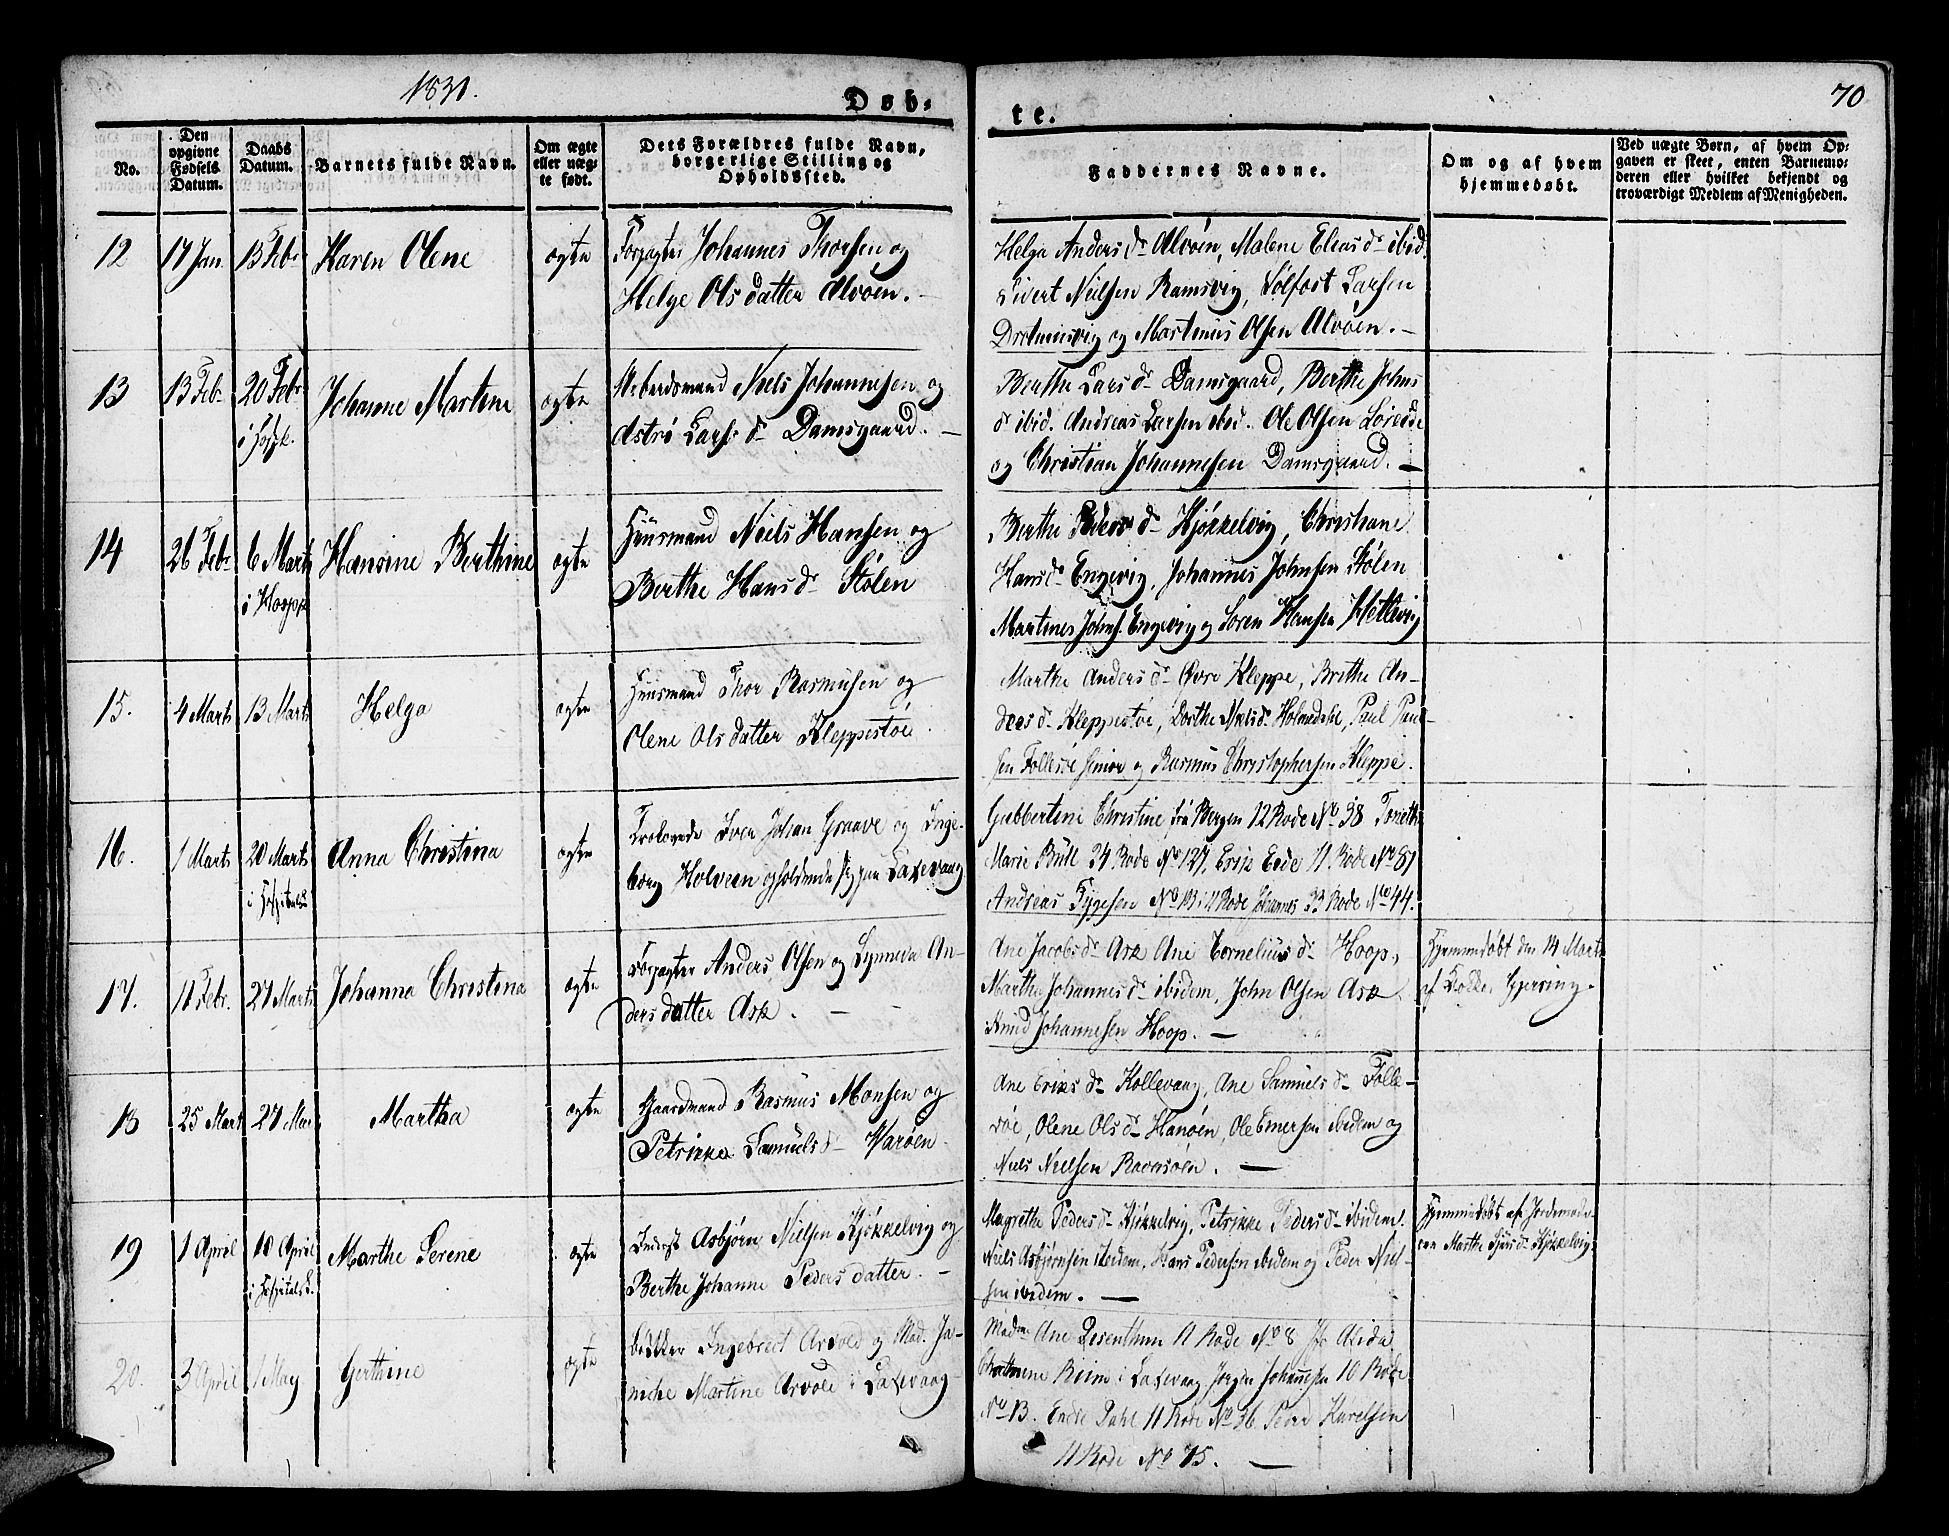 1831.
Døb-
te.
70
No.
Den opgivne Fødsels Datum.
Daabs Datum.
Barnets fulde Navn.
Om ægte eller uægte født.
Dets Forældres fulde Navn, borgerlige Stilling og Opholdssted.
Faddernes Navne.
Om og af hvem hjemmedøbt.
Ved uægte Børn, af hvem Opgaven er skeet, enten Barnemoderen eller hvilket bekjendt og troværdigt Medlem af Menigheden.
12 17 Jan. 13 Febr Karen Olene ægte Forpagter Johannes Thorsen og
Helge Olsdatter Alvøen.
Helga Andersdr Alvøen, Malene Eliasdr ibid.
Sivert Nielsen Ramsvig, Sølfest Larsen
Drotningvig og Martinus Olsen Alvøen.
13 13 Febr 20 Febr Johanne Martine ægte Arbeidsmand Niels Johannesen og
Astrø Larsdr Damsgaard.
Berthe Larsdr Damsgaard, Berthe Johns
dr ibid. Andreas Larsen ibid. Ole Olsen
og Christian Johannesen Damsgaard.
14 26 Febr 6 Marts Hansine Berthine ægte Huusmand Niels Hansen og
i Hoppe
Berthe Hansdr Stølen
Berthe Pedersdr Kjøkkelvig, Christiane
Hansdr Engevig, Johannes Johnsen Stølen
Martines Johns. Engevig og Søren Hansen Hetlevig
15. 4 Marts 13 Marts Helga ægte Huusmand Thor Rasmusen og
Olene Olsdatter Kleppestøe.
Marthe Andersdr Øvre Kleppe, Brithe An-
dersdr Kleppestøe, Dorthe Nielsdr Holmedahl, Paul Paul-
sen Follesøe senior og Rasmus Christophersen Kleppe.
16. 1 Marts 20 Marts Anna Christina ægte Trolovede Iver Johan Graave og Inge-
borg Holveen opholdende sig paa Laxevaag
Gubbertine Christine fra Bergen 12 Rode No 38 Tonethe
Marie Büll 24 Rode No 127, Erik Eide 11. Rode No 81
Andreas Tygesen No 13 i 11 Rode Johannes 23 Rode No 44.
17. 11 Febr. 27 Marts Johanna Christina ægte Forpagter Anders Olsen og Synneva An-
dersdatter Ask.
Ane Jacobsdr Ask Ane Corneliusdr Hoop,
Martha Johannesdr ibidem, John Olsen Ask,
Knud Johannesen Hoop.
Hjemmedøbt den 14 Marts
af Hjersing.
18 25 Mart 27 Mar Martha ægte Gaardmand Rasmus Monsen og
Petrikka Samuelsdr Varøen
Ane Eriksdr Kollevaag, Ane Samuelsdr Folle-
søe, Olene Olsdr Hanøen, Ole Emersen ibidem og
Niels Nielsen Ravnsøen.
19 1 April 10 April Marthe Serene ægte Inderst Asbjørn Nielsen Kjøkkelvig og
Berthe Johanne Pedersdatter.
Magrethe Pedersdr Kjøkkelvig, Petrikke Pedersdr ibidem.
Niels Asbjørnsen ibidem, Hans Pedersen ibidem og Peder Niel-
sen ibidem.
Hjemmedøbt af Jordemode-
ren Marthe Sjursdr Kjøkkelvig
20. 3 April 1 May Gerthine ægte bødker Ingebrect Arvold og Mad. Ja-
niche Martine Arvold i Laxevaag
Madme Ane Rosenthum 11 Rode No 8 Alida
Riim i Laxevaag Jørgen Johannsen 10 Rode
No 13. Endre Dahl 11 Rode No 36 Peder Karelsen
11 Rode No 75.